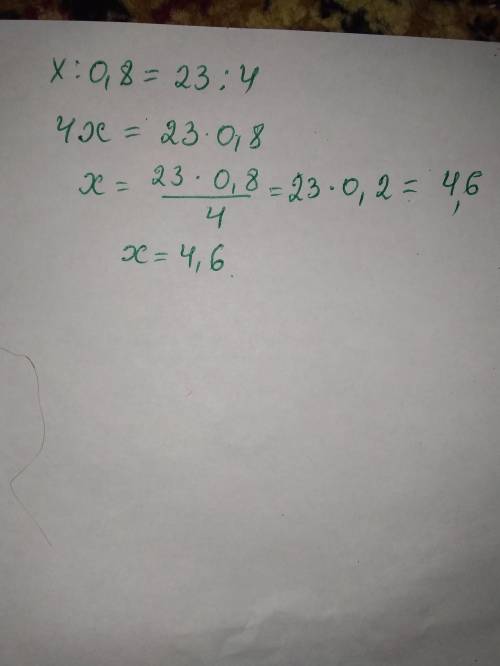 x : 0,8 = 23 : 4
4x = 23 · 0,8
x = \frac{23 · 0,8}{4} = 23 · 0,2 = 4,6
x = 4,6